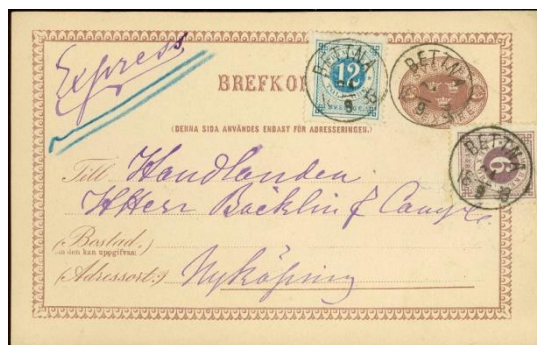 Express
BREFKOR
12
BETTNA
9
BETTNA
9
(DENNA SIDA ANVÄNDES ENDAST FÖR ADRESSERINGEN.)
BETTNA
9
6
Till Handlanden
HHerr Bäcklin & Comp.
(Bostad.
om den kan uppgifvas:)
(Adressort:) Nyköping